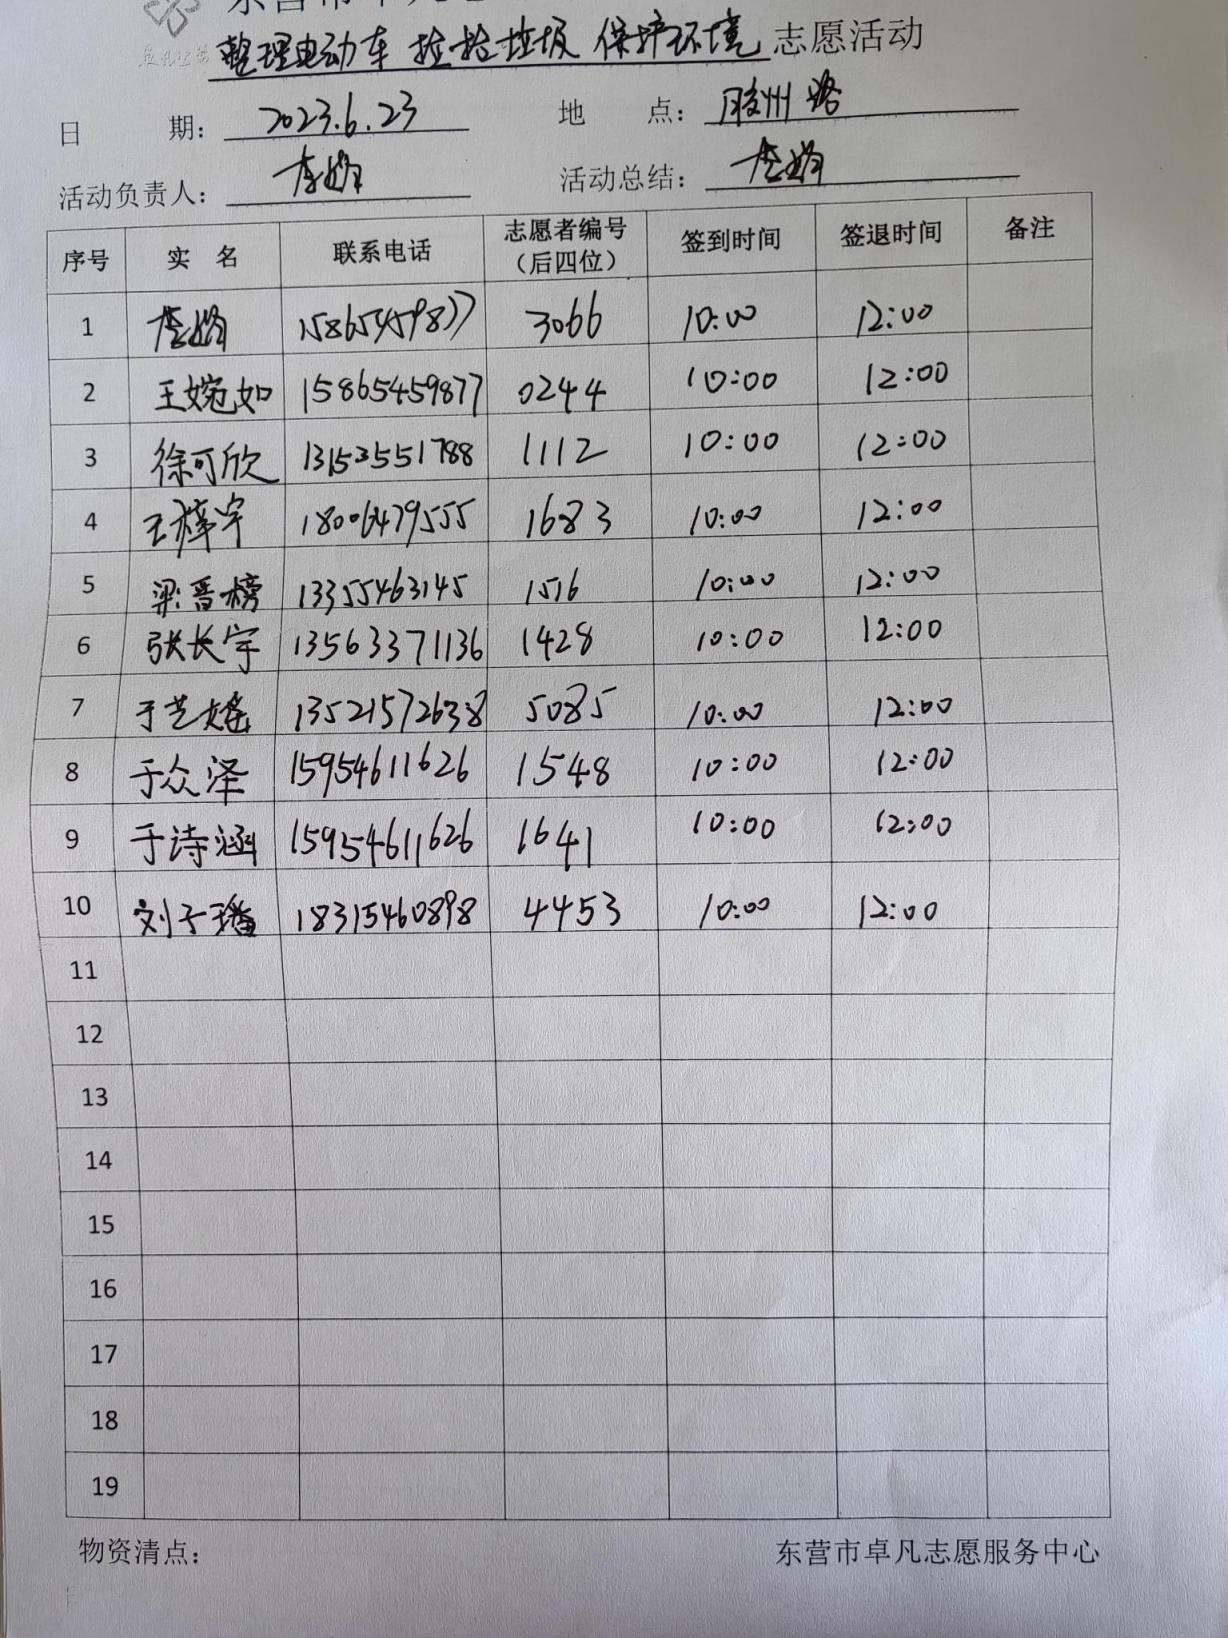 整理电动车 捡拾垃圾 保护环境 志愿活动
日 期：2023.6.23 地 点：胶州路
活动负责人：李娟 活动总结：李娟
序号 实 名 联系电话 志愿者编号（后四位） 签到时间 签退时间 备注
1 李娟 15865459877 3066 10:00 12:00
2 王婉如 15865459877 0244 10:00 12:00
3 徐可欣 13153551788 1112 10:00 12:00
4 王梓宇 18006479555 1683 10:00 12:00
5 梁晋榜 13355463145 1516 10:00 12:00
6 张长宇 13563371136 1428 10:00 12:00
7 于艺媱 13521572638 5085 10:00 12:00
8 于众泽 15954611626 1548 10:00 12:00
9 于诗涵 15954611626 1641 10:00 12:00
10 刘子璠 18315460898 4453 10:00 12:00
11
12
13
14
15
16
17
18
19
物资清点： 东营市卓凡志愿服务中心